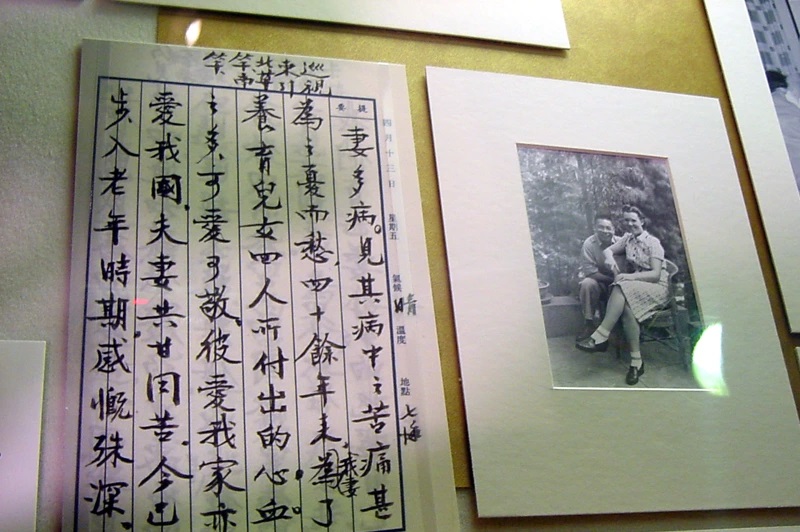 四月十三日 星期五 氣候 晴 溫度 地點 七海
提要
巡視
東引
妻多病。見其病中之苦痛甚
為之憂而愁,四十餘年来,為了
我妻
養育兒女四人所付出的心血。
之美可愛可敬,彼愛我家亦
愛我國,夫妻共甘同苦,今已
步入老年時期,感慨殊深,